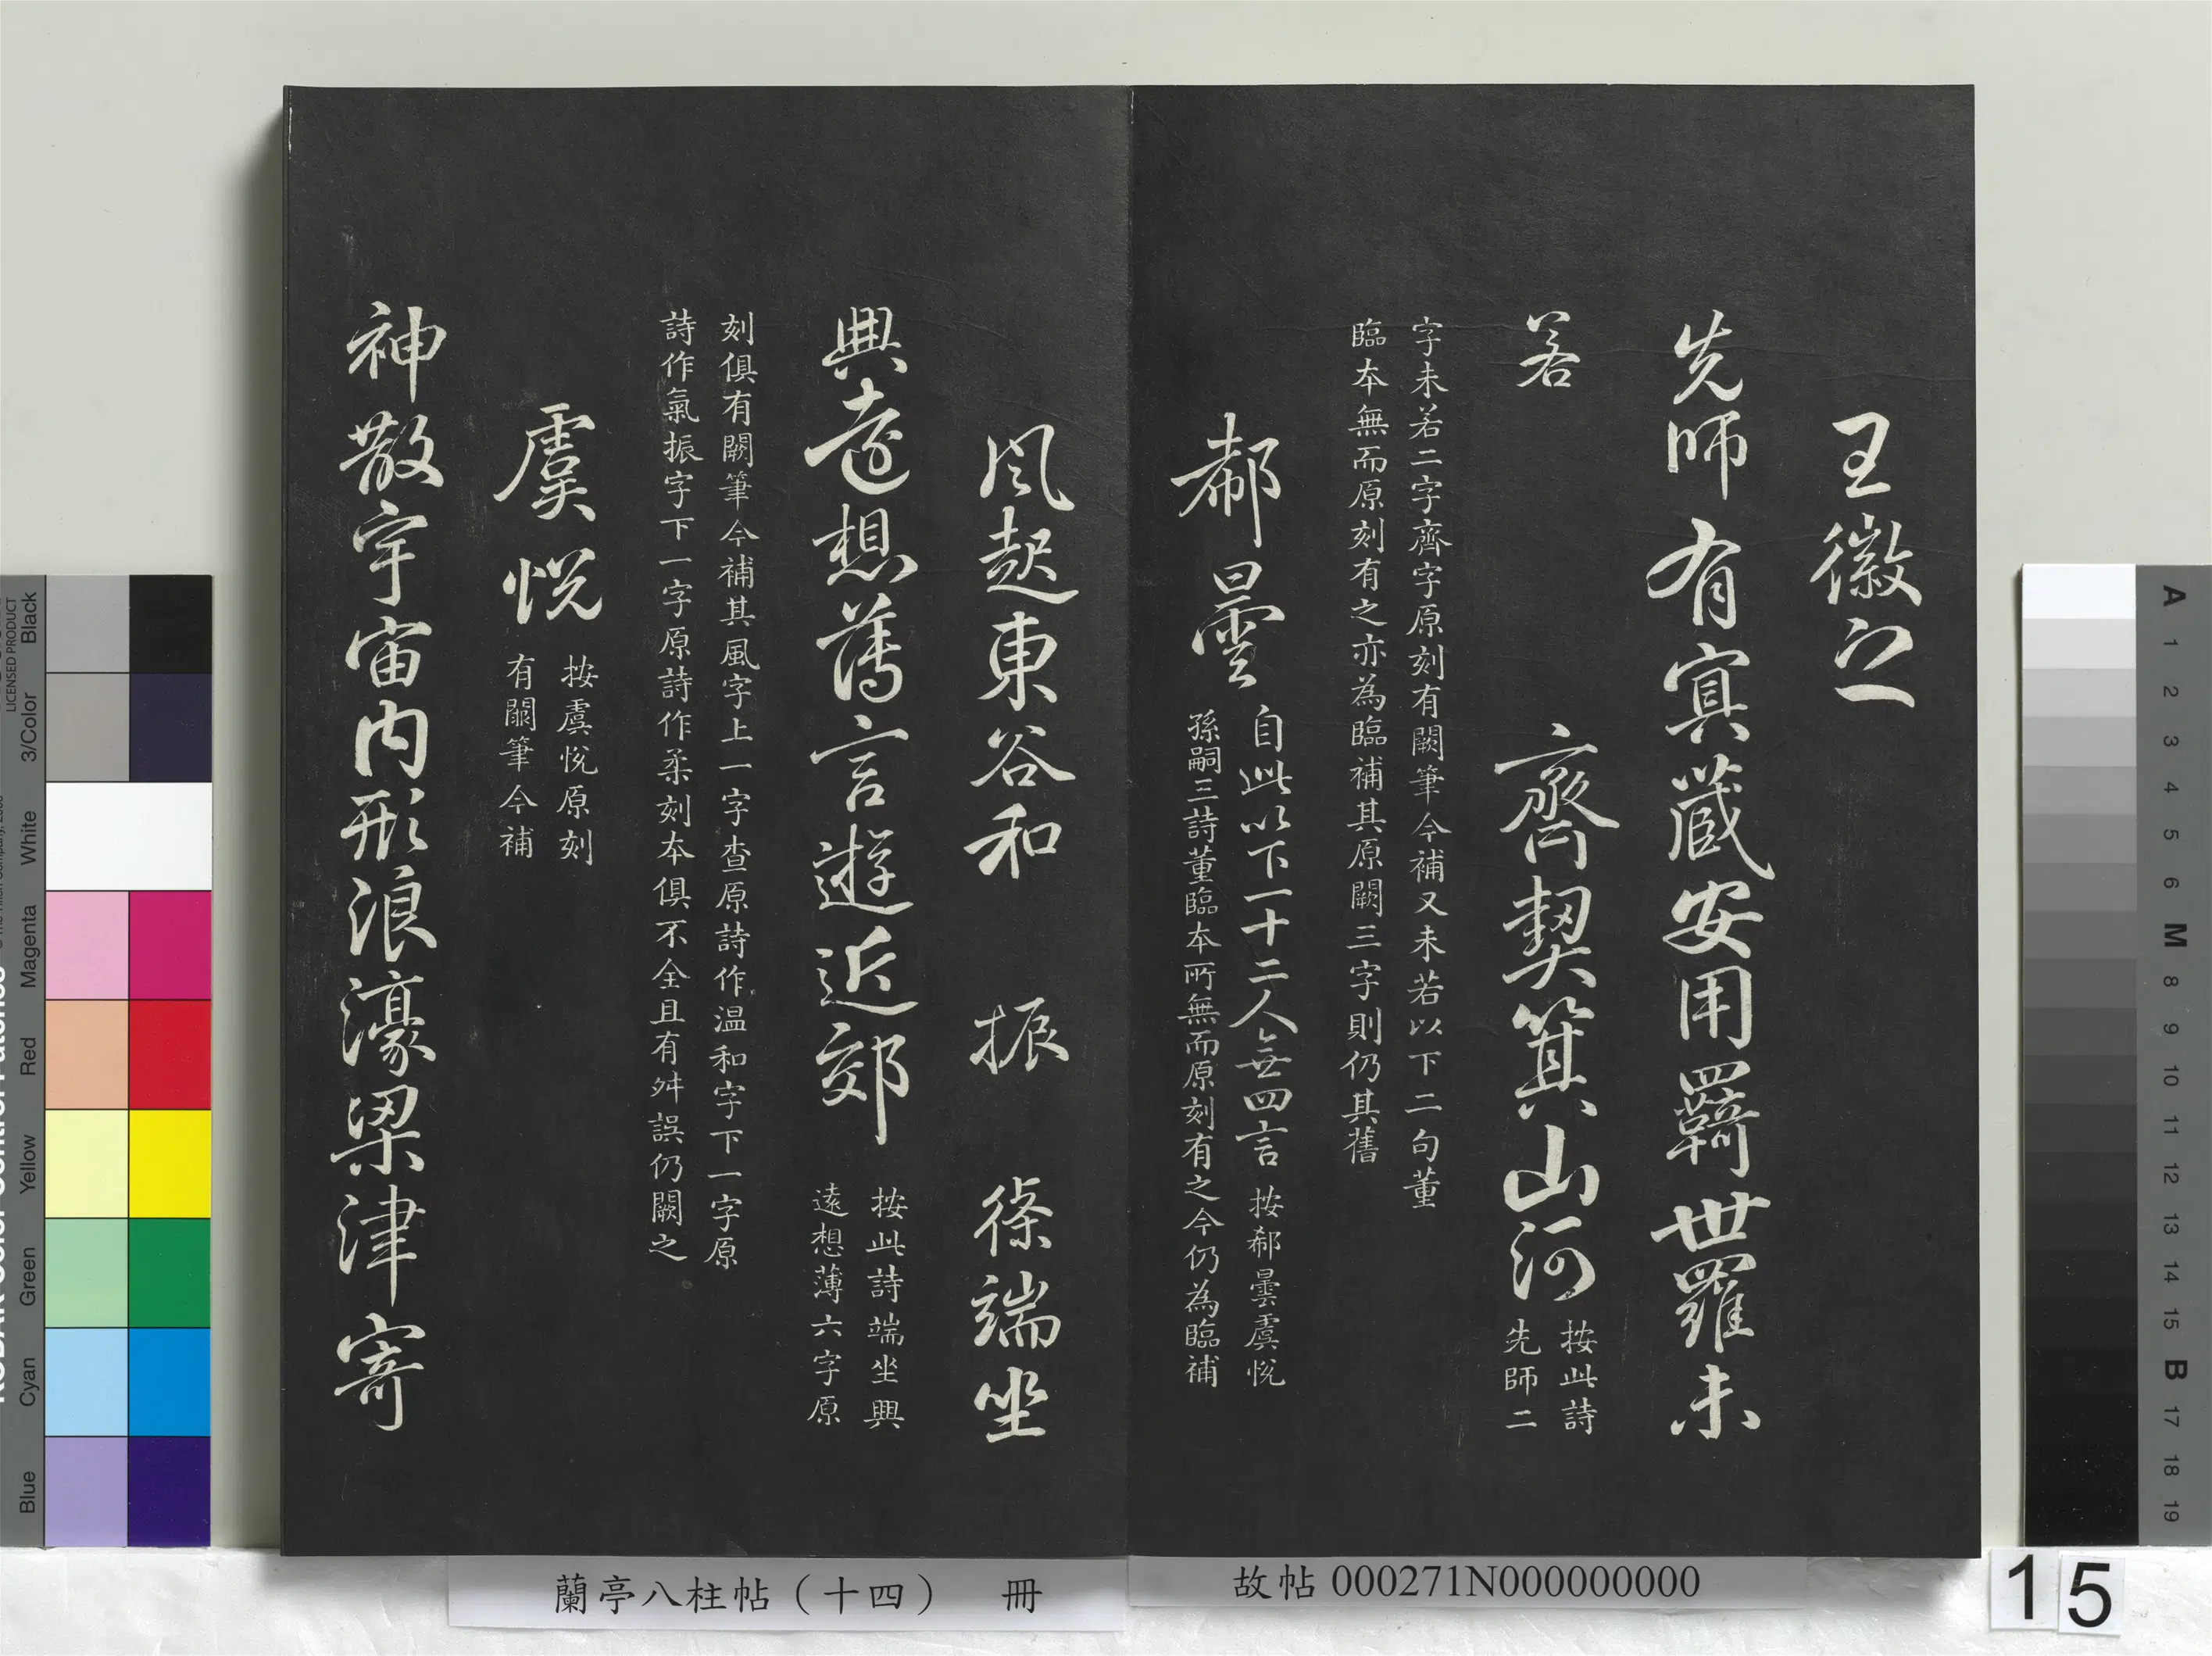 王徽之
先師有冥藏安用羈世羅未
若 齊契箕山河
按此詩
先師二
字未若二字齊字原刻有闕筆今補又未若以下二句董
臨本無而原刻有之亦為臨補其原闕三字則仍其舊
郗曇
自此以下一十二人無四言
按郗曇虞悅
孫嗣三詩董臨本所無而原刻有之今仍為臨補
風起東谷和 振 條端坐
興遠想薄言遊近郊
按此詩端坐興
遠想薄六字原
刻俱有闕筆今補其風字上一字查原詩作温和字下一字原
詩作氣振字下一字原詩作柔刻本俱不全且有舛誤仍闕之
虞悅
按虞悅原刻
有闕筆今補
神散宇宙内形浪濠梁津寄
蘭亭八柱帖（十四） 冊
故帖 000271N000000000
15
Black
3/Color
White
Magenta
Red
Yellow
Green
Cyan
Blue
LICENSED PRODUCT
A 1 2 3 4 5 6 M 8 9 10 11 12 13 14 15 B 17 18 19